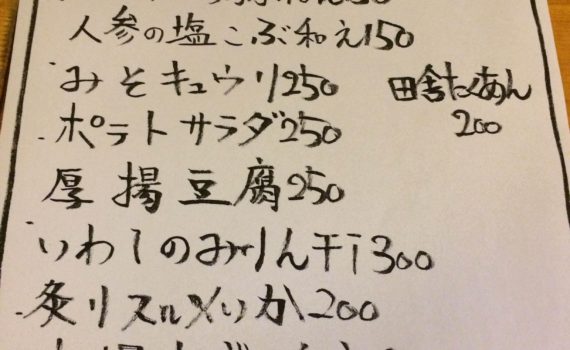 人参の塩こぶ和え150
みそキュウリ250
田舎たくあん
200
ポテトサラダ250
厚揚豆腐250
いわしのみりん干350
炙りスルメいか200